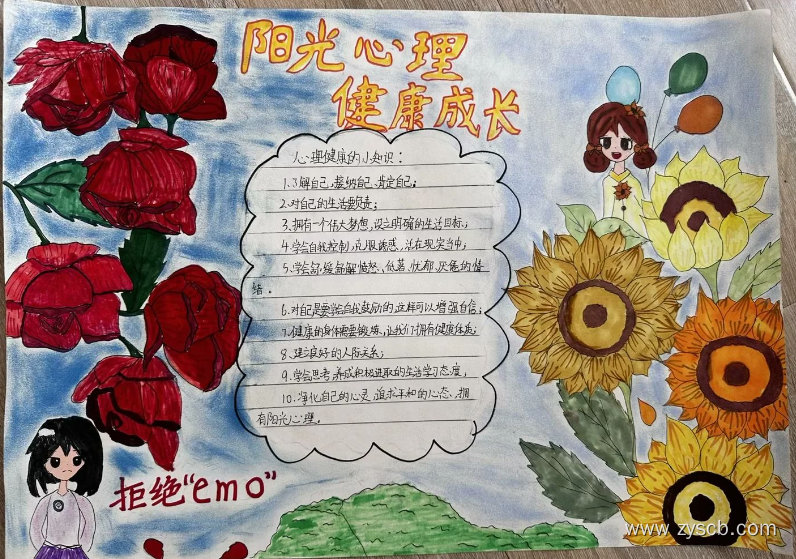 阳光心理
健康成长
心理健康的小知识：
1.了解自己,接纳自己、肯定自己；
2.对自己的生活要负责；
3.拥有一个伟大梦想,设立明确的生活目标；
4.学会自我控制,克服诱惑,活在现实当中；
5.学会舒缓和解愤怒、低落、忧郁、厌倦的情
绪。
6.对自己是要学会自我鼓励的,这样可以增强自信；
7.健康的身体需要锻炼,让我们拥有健康体态；
8.建立良好的人际关系；
9.学会思考,养成积极进取的生活学习态度；
10.净化自己的心灵,追求平和的心态,拥
有阳光心理。
拒绝“emo”
www.zyscb.com